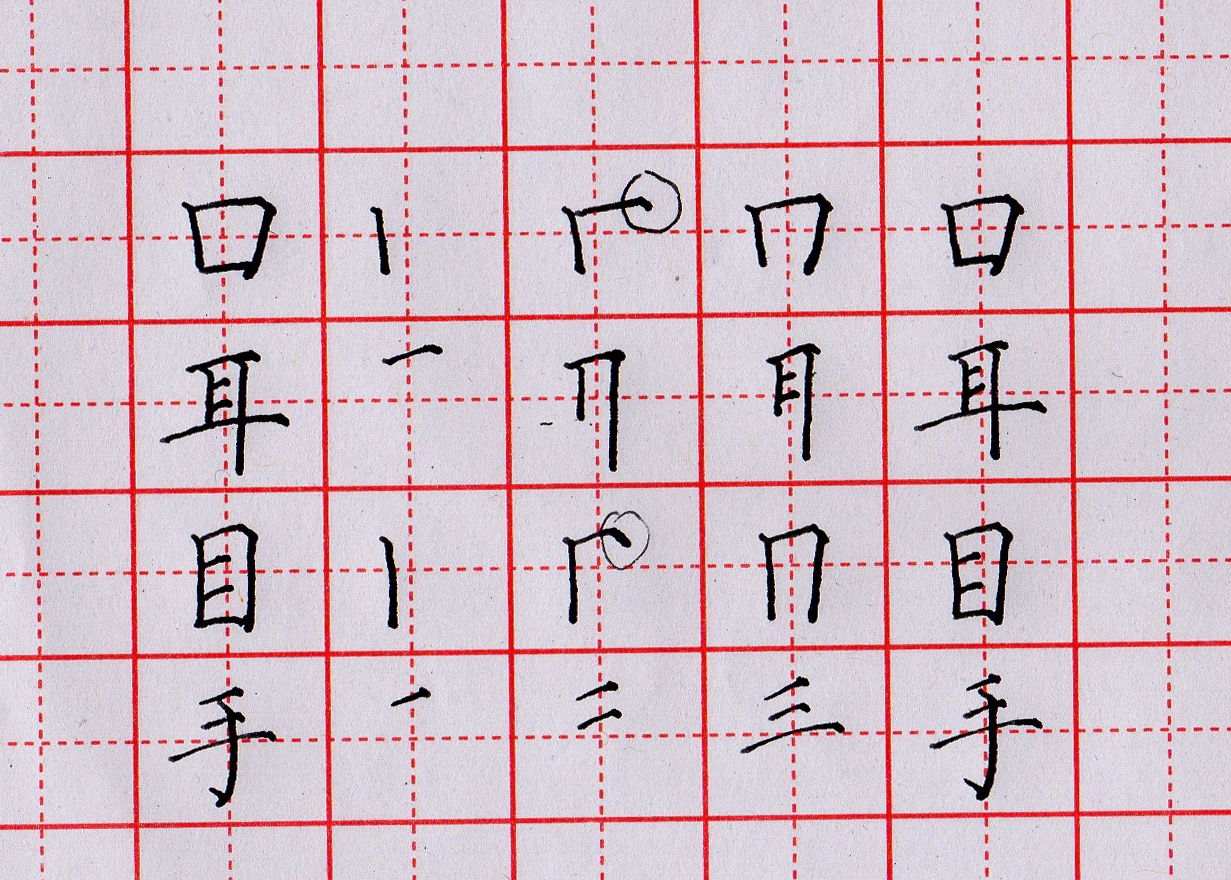 口 丨 冂 口
耳 一 耳
目 丨 冂 目
手 一 二 三 手